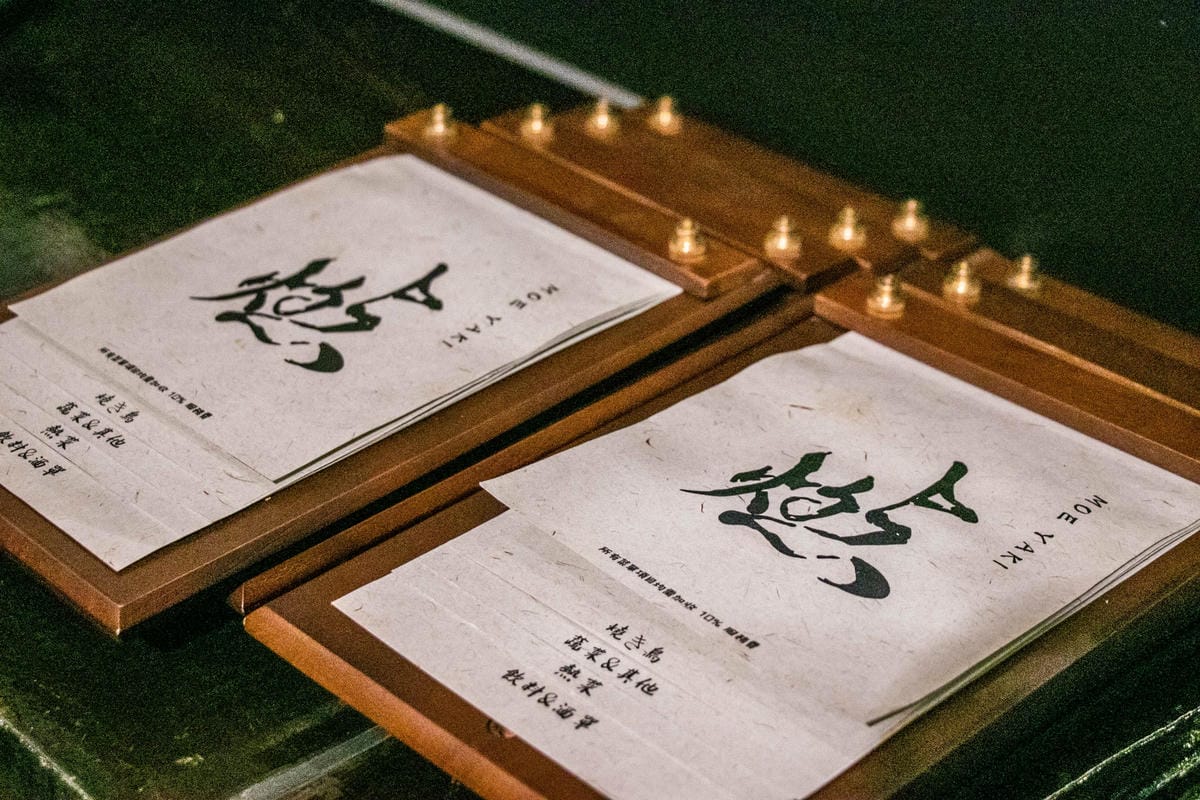 MOE YAKI
所有菜單項目均需加收 10% 服務費
燒き鳥
蔬菜&其他
熱菜
飲料&酒單
MOE YAKI
所有菜單項目均需加收 10% 服務費
燒き鳥
蔬菜&其他
熱菜
飲料&酒單